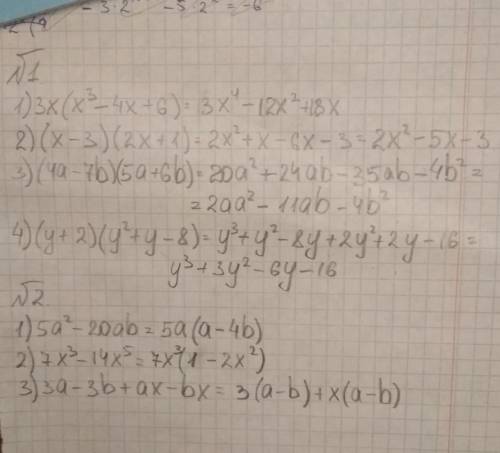 - 3·2 - 5·2 = -6
№1
1) 3x(x³ - 4x + 6) = 3x⁴ - 12x² + 18x
2) (x - 3)(2x + 1) = 2x² + x - 6x - 3 = 2x² - 5x - 3
3) (4a - 7b)(5a + 6b) = 20a² + 24ab - 35ab - 4b² =
= 20a² - 11ab - 4b²
4) (y + 2)(y² + y - 8) = y³ + y² - 8y + 2y² + 2y - 16 =
y³ + 3y² - 6y - 16
№2
1) 5a² - 20ab = 5a(a - 4b)
2) 7x³ - 14x⁵ = 7x³(1 - 2x²)
3) 3a - 3b + ax - bx = 3(a - b) + x(a - b)